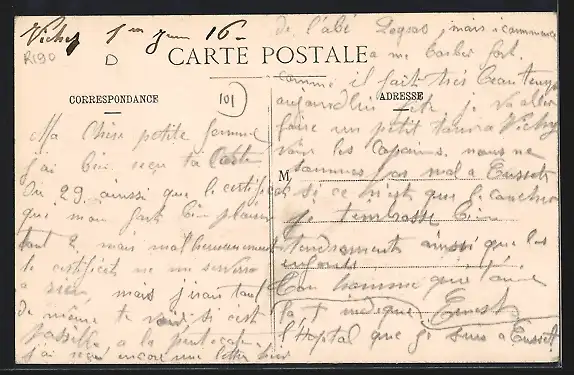 Vichy 1er Juin 16
R190
D
CARTE POSTALE
CORRESPONDANCE
101
ADRESSE
M
Ma Chère petite femme
j'ai bien reçu ta Carte
du 29 aussi que le certificat
qui mon fait bien plaisir
tout 2 mais malheureusement
le certificat ne me servira
a rien mais j'irai tout
de même te voir si c'est
possible a la
j'ai reçu encore une lettre hier
de l'abé mais commence
a me barber fort
comme il fait très beau temps
aujourd'hui je vais aller
faire un petit tour a Vichy
voir les copains nous ne
sommes pas mal a Cusset
si ce n'est que le
Je t'embrasse bien
tendrement ainsi que les
enfants
Ton homme qui t'aime
la + indique Ernest
l'Hopital que je suis a Cusset